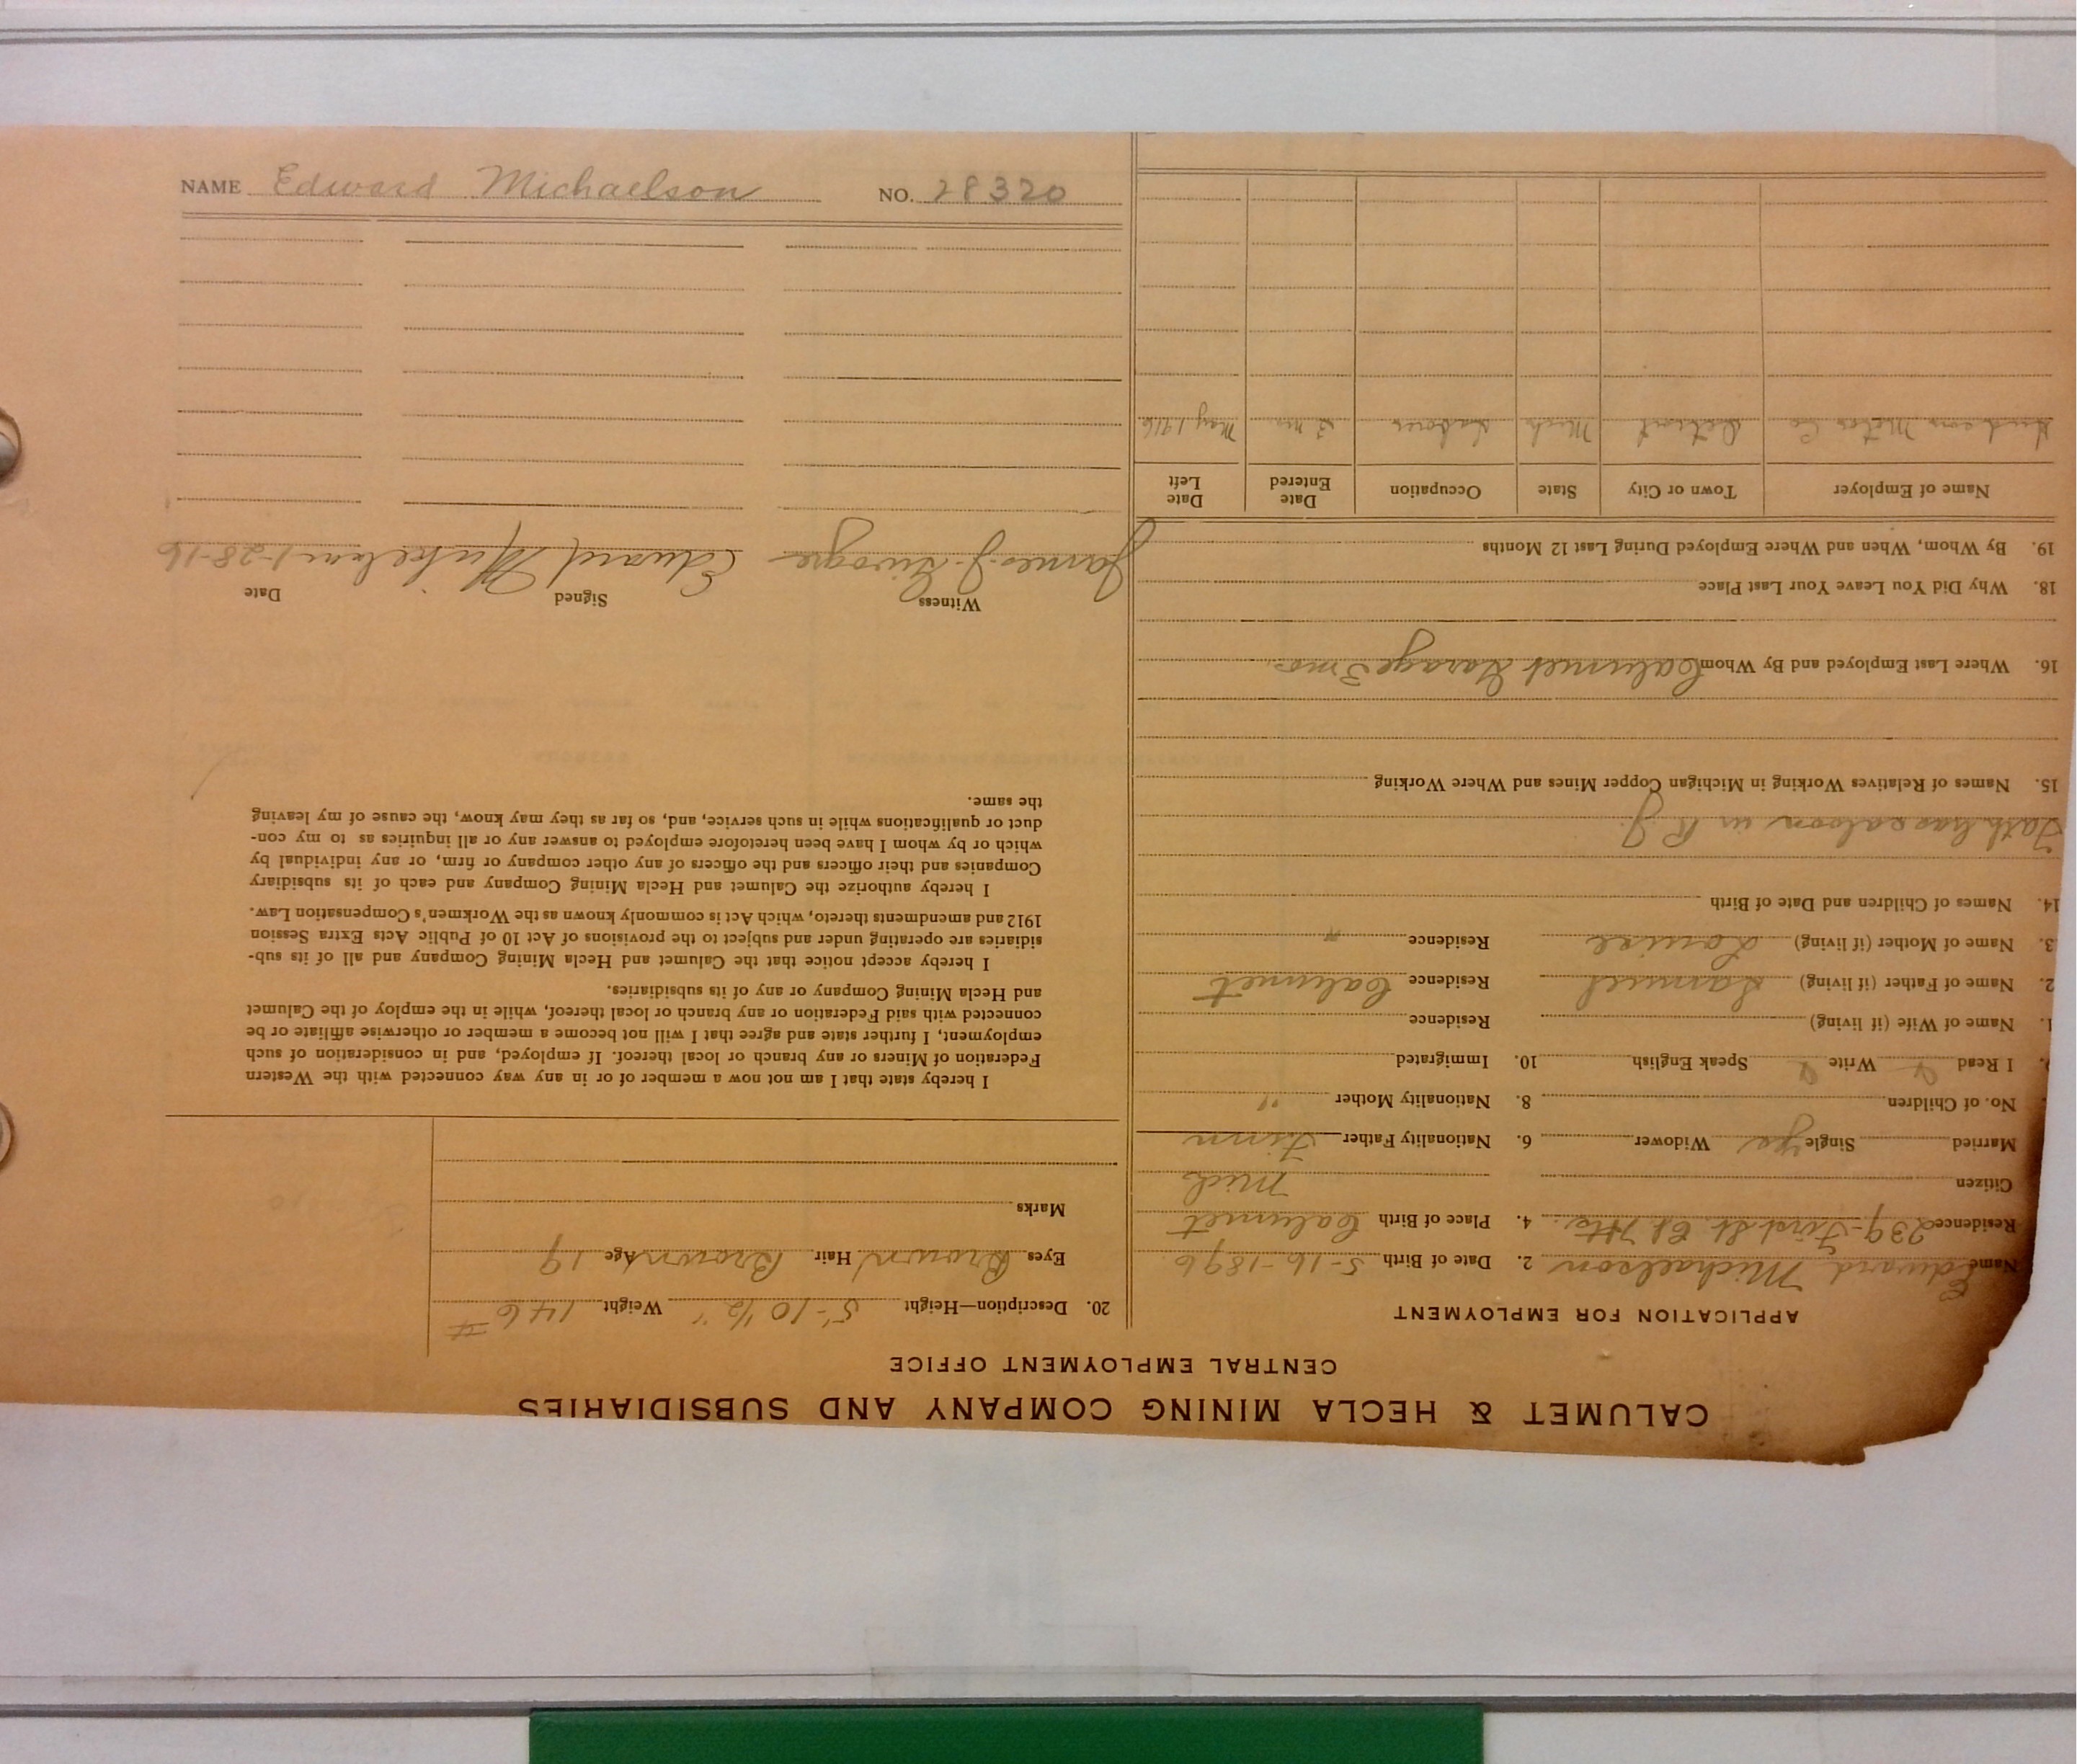 NAME Edward Michaelson NO. 28320
CALUMET & HECLA MINING COMPANY AND SUBSIDIARIES
CENTRAL EMPLOYMENT OFFICE
APPLICATION FOR EMPLOYMENT
Name Edward Michaelson 2. Date of Birth 5-16-1896
Residence 239-First St. 4. Place of Birth Calumet
Citizen Mich
Married Single yes Widower 6. Nationality Father Finn
No. of Children 8. Nationality Mother "
I Read Write Speak English 10. Immigrated
1. Name of Wife (if living) Residence
2. Name of Father (if living) Samuel Residence Calumet
3. Name of Mother (if living) Louise Residence "
14. Names of Children and Date of Birth
Fath has saloon in R.J.
15. Names of Relatives Working in Michigan Copper Mines and Where Working
16. Where Last Employed and By Whom Calumet Garage 3 mo.
18. Why Did You Leave Your Last Place
19. By Whom, When and Where Employed During Last 12 Months
Name of Employer Town or City State Occupation Date Entered Date Left
Motor Co Detroit Mich Laborer 2 mo. May 1916
20. Description—Height 5'-10 1/2" Weight 146 #
Eyes Brown Hair Brown Age 19
Marks
I hereby state that I am not now a member of or in any way connected with the Western
Federation of Miners or any branch or local thereof. If employed, and in consideration of such
employment, I further state and agree that I will not become a member or otherwise affiliate or be
connected with said Federation or any branch or local thereof, while in the employ of the Calumet
and Hecla Mining Company or any of its subsidiaries.
I hereby accept notice that the Calumet and Hecla Mining Company and all of its sub-
sidiaries are operating under and subject to the provisions of Act 10 of Public Acts Extra Session
1912 and amendments thereto, which Act is commonly known as the Workmen's Compensation Law.
I hereby authorize the Calumet and Hecla Mining Company and each of its subsidiary
Companies and their officers and the officers of any other company or firm, or any individual by
which or by whom I have been heretofore employed to answer any or all inquiries as to my con-
duct or qualifications while in such service, and, so far as they may know, the cause of my leaving
the same.
Witness Signed Date
James J. Edward 1-28-16